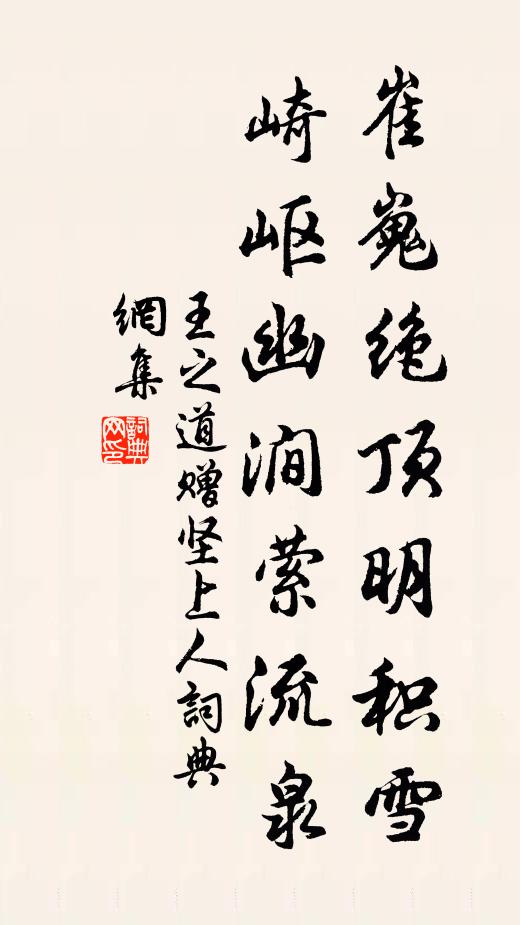 崔嵬绝顶明积雪
崎岖幽涧萦流泉
王之道赠坚上人詞典
網集
詞典网印